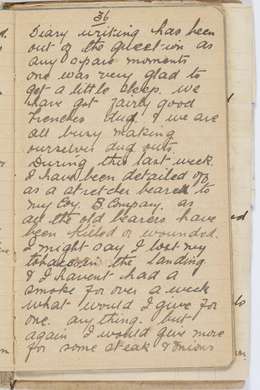 36
Diary writing has been
out of the question as
any spare moments
one was very glad to
get a little sleep. we
have got fairly good
trenches dug & we are
all busy making
ourselves dug outs.
During this last week
I have been detailed off
as a stretcher bearer to
my Coy. B Company. as
all the old bearers have
been killed or wounded.
I might say I lost my
tobacco in the landing
& I havent had a
smoke for over a week
what would I give for
one. any thing. but
again I would give more
for some steak & onions